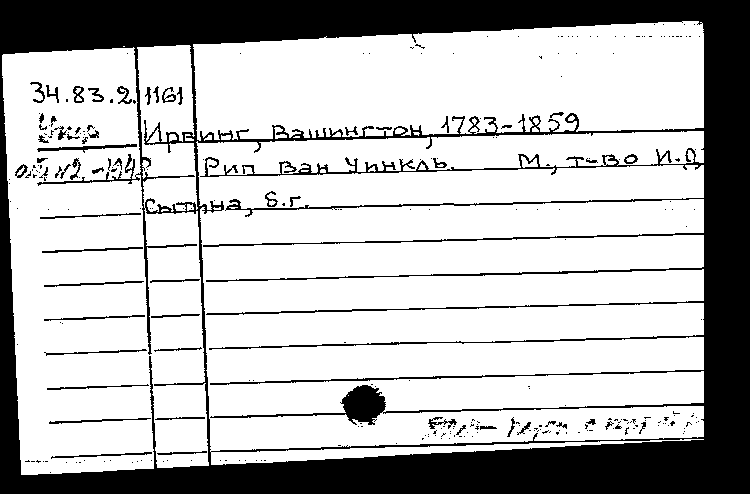 34.83.2.1161
Ирвинг, Вашингтон, 1783-1859
Рип Ван Уинкль. М., т-во И.Д.
Сытина, б.г.